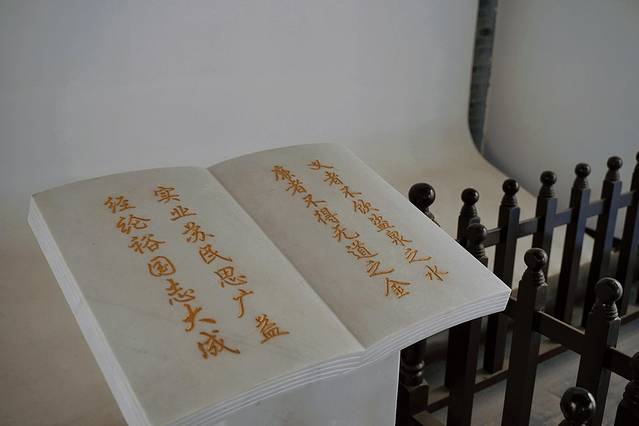 义者不饮盗泉之水
廉者不得无道之金
实业苏民思广益
经纶裕国志大成